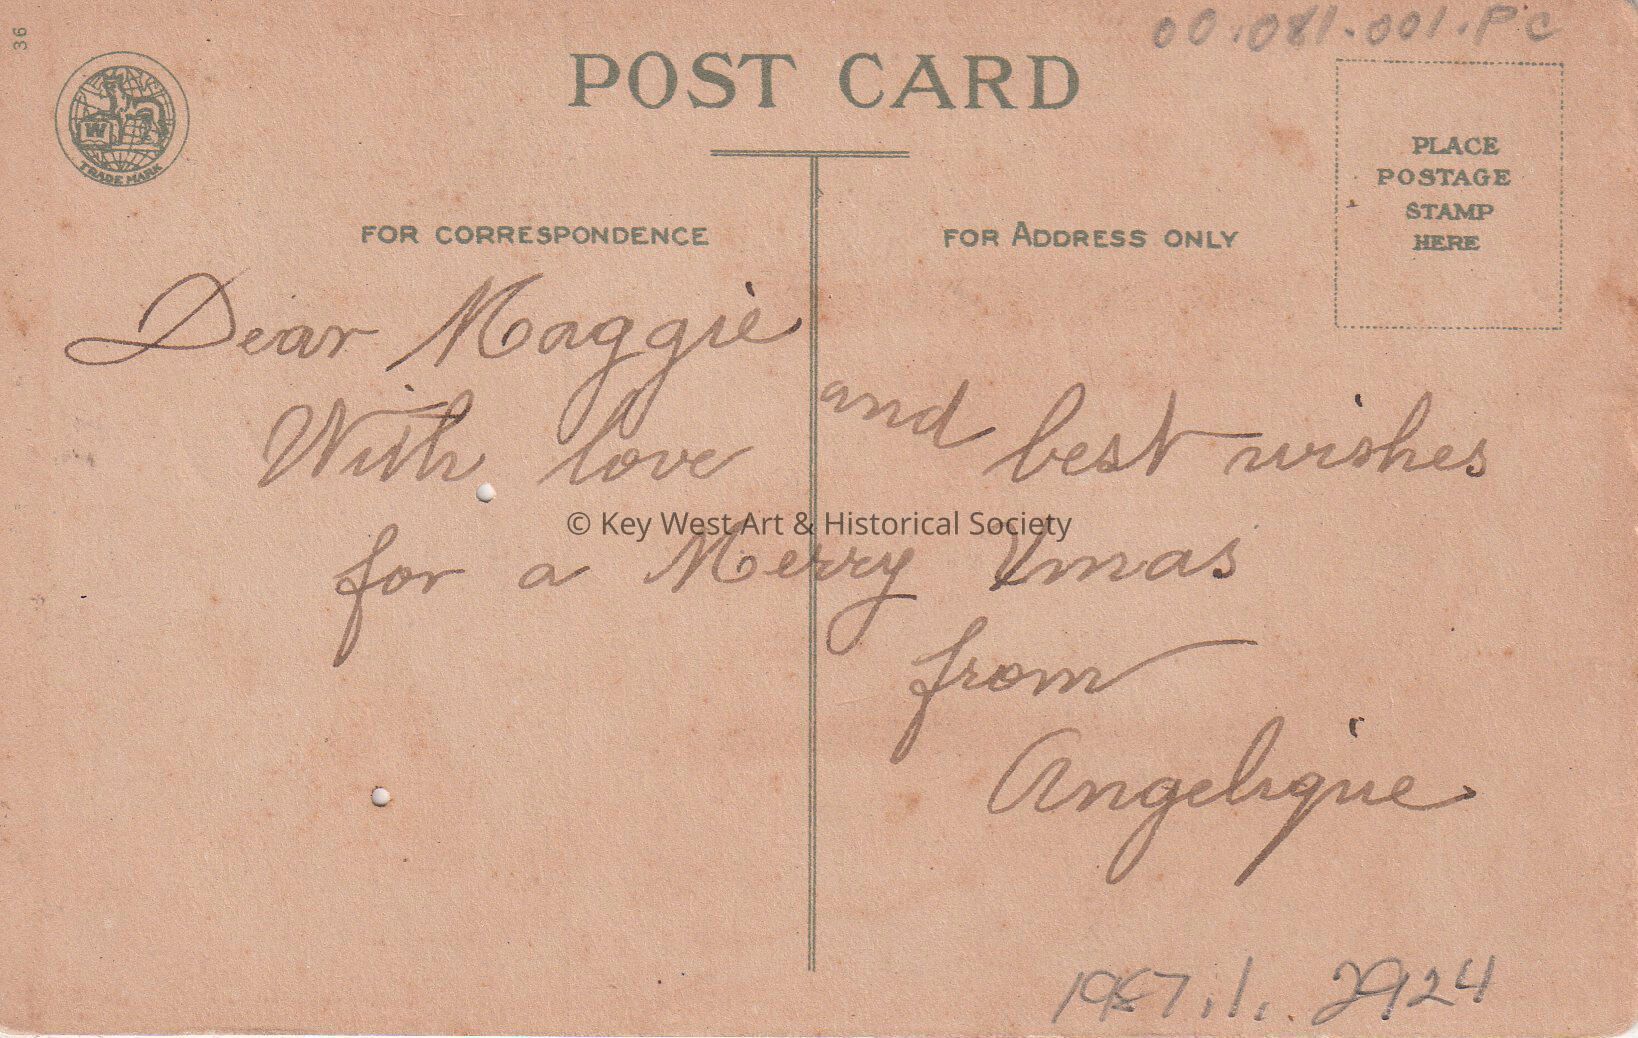 36
00.081.001.PC
POST CARD
W
TRADE MARK
PLACE
POSTAGE
STAMP
HERE
FOR CORRESPONDENCE
FOR ADDRESS ONLY
Dear Maggie
With love and best wishes
© Key West Art & Historical Society
for a Merry Xmas
from
Angelique
1987.1.2924